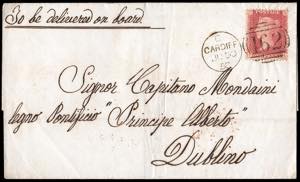 To be delivered on board.
CARDIFF
162
Signor Capitano Mondaini
legno Pontificio "Principe Alberto"
Dublino